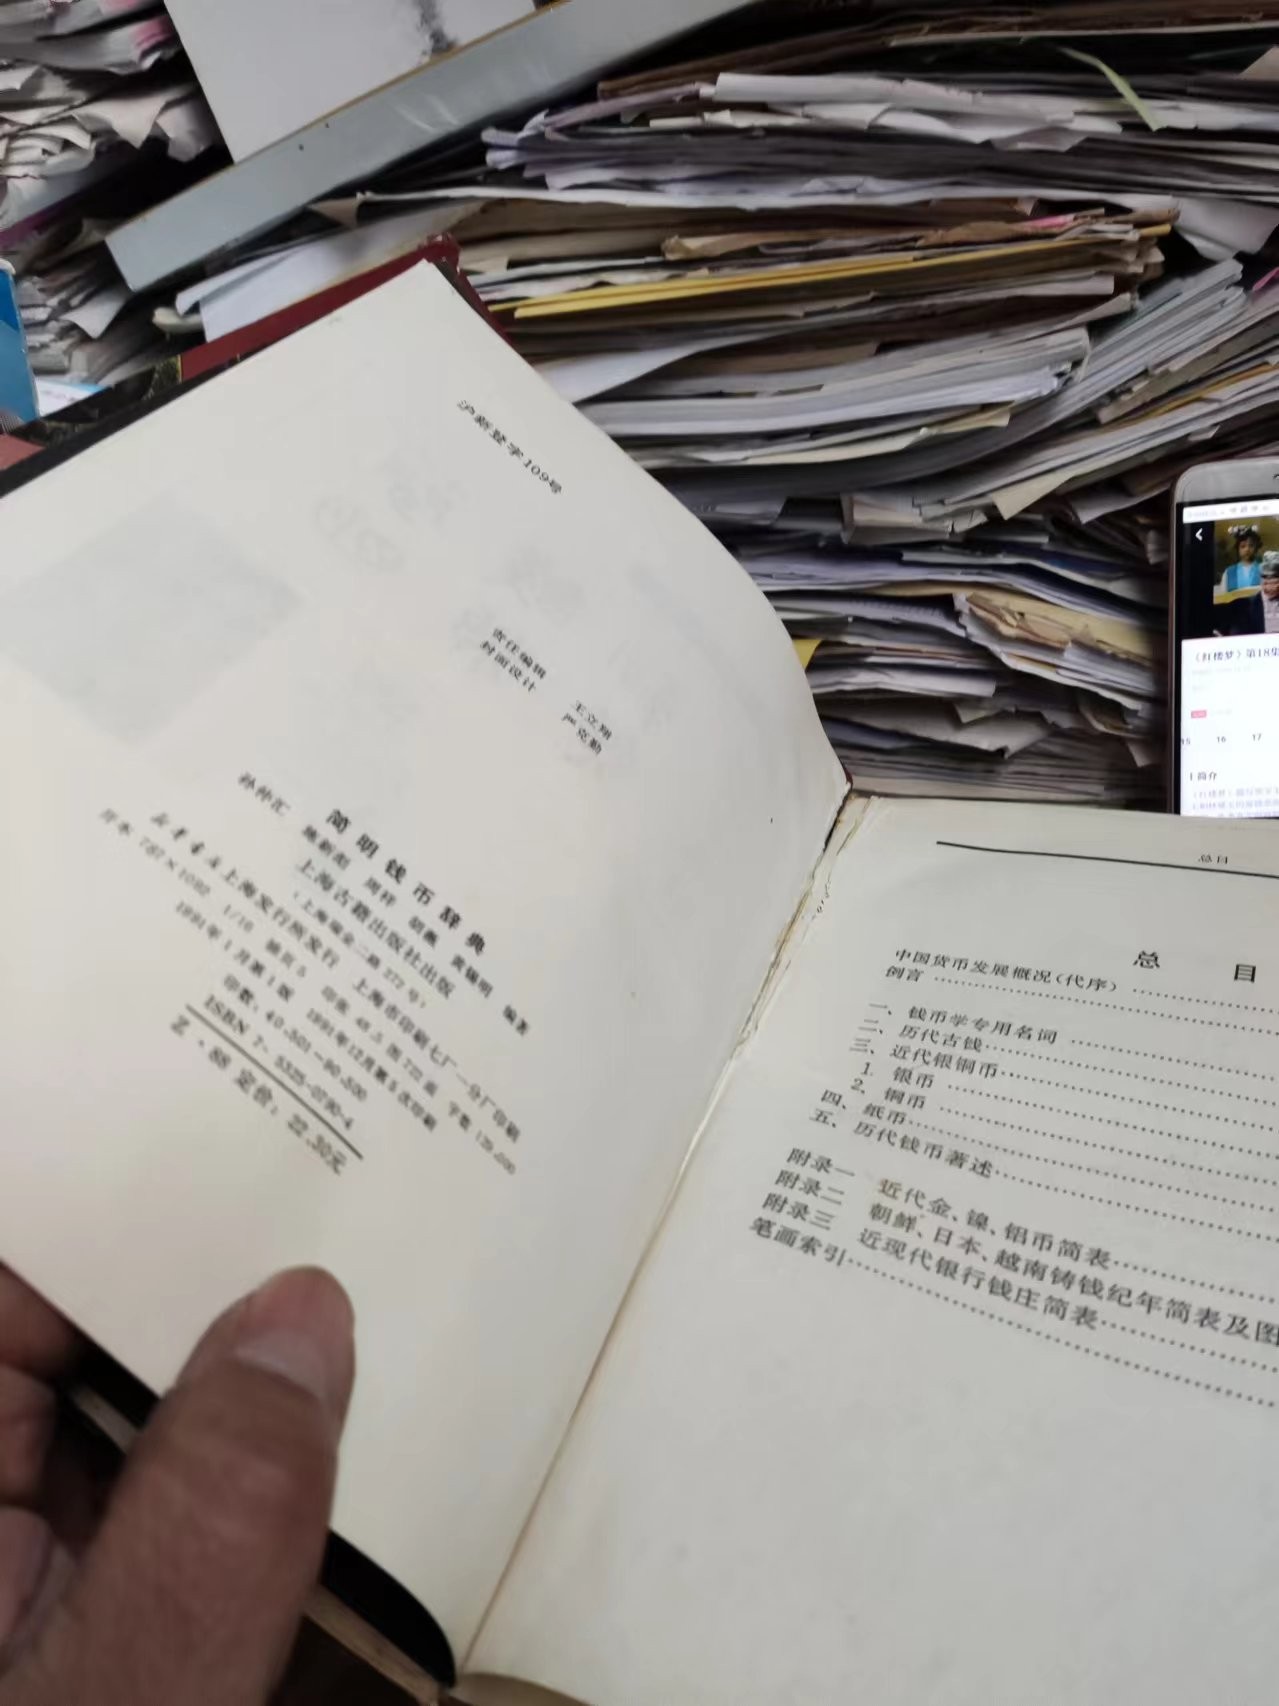 沪新登字109号
责任编辑 王立翔
封面设计 严克勤
简明钱币辞典
孙仲汇 施新彪 周祥 胡薇 黄锡明 编著
上海古籍出版社出版
(上海瑞金二路272号)
新华书店上海发行所发行 上海市印刷七厂一分厂印刷
开本 787×1092 1/16 插页 5 印张 45.5 图 722面 字数
1991年1月第1版 1991年12月第5次印刷
印数：40,501—90,500
ISBN 7-5325-0790-4
Z·88 定价：22.30元
总目
总 目
中国货币发展概况(代序)
例言
一、钱币学专用名词
二、历代古钱
三、近代银铜币
1. 银币
2. 铜币
四、纸币
五、历代钱币著述
附录一 近代金、镍、铝币简表
附录二 朝鲜、日本、越南铸钱纪年简表及图
附录三 近现代银行钱庄简表
笔画索引
《红楼梦》第18集
15 16 17
简介